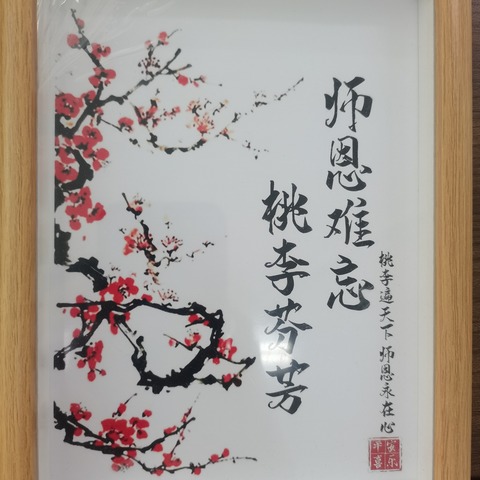 师恩难忘
桃李芬芳
桃李遍天下 师恩永在心